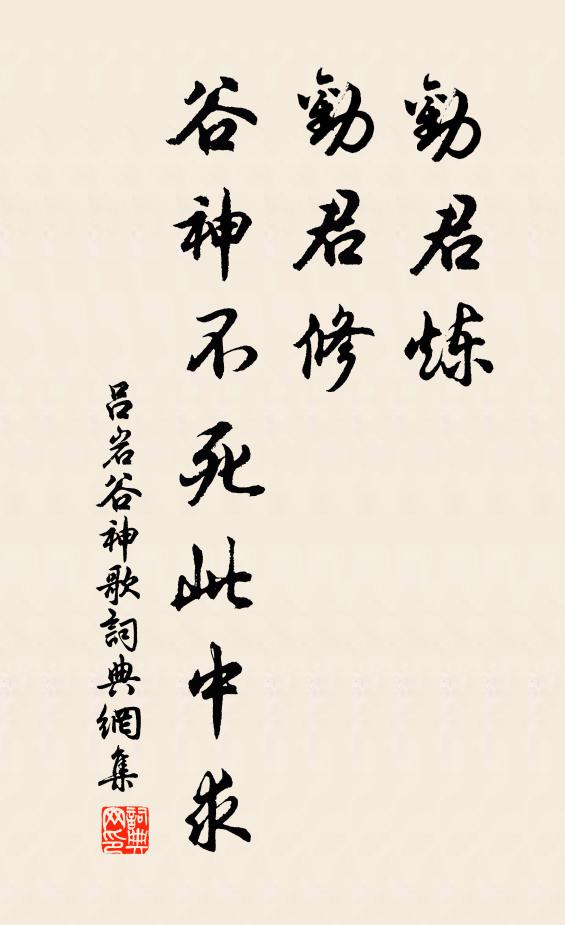 勸君炼
勸君修
谷神不死此中求
吕岩谷神歌詞典網集
詞典网印